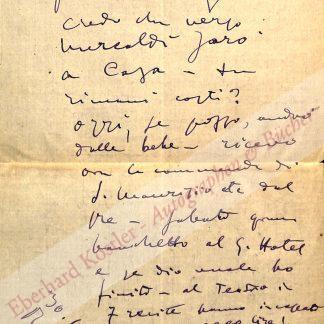 credo che verso
mercoldì sarò
a casa - tu
rimani costì?
oggi, se posso, andrò
dalle bebe - ricevo
ora la commenda di
S. Maurizio etc dal
Re - sabato gran
banchetto al G. Hotel
e se dio vuole ho
finito - al Teatro in
7 recite hanno incassato
lire!
Eberhard Köstler - Autographen & Bücher